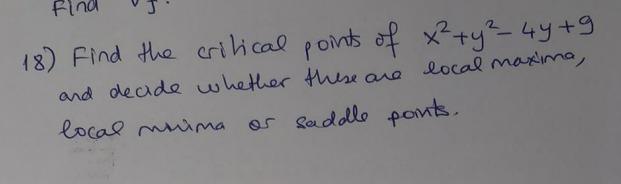 Find
18) Find the critical points of x²+y²-4y+9
and decide whether these are local maxima,
local minima or saddle points.